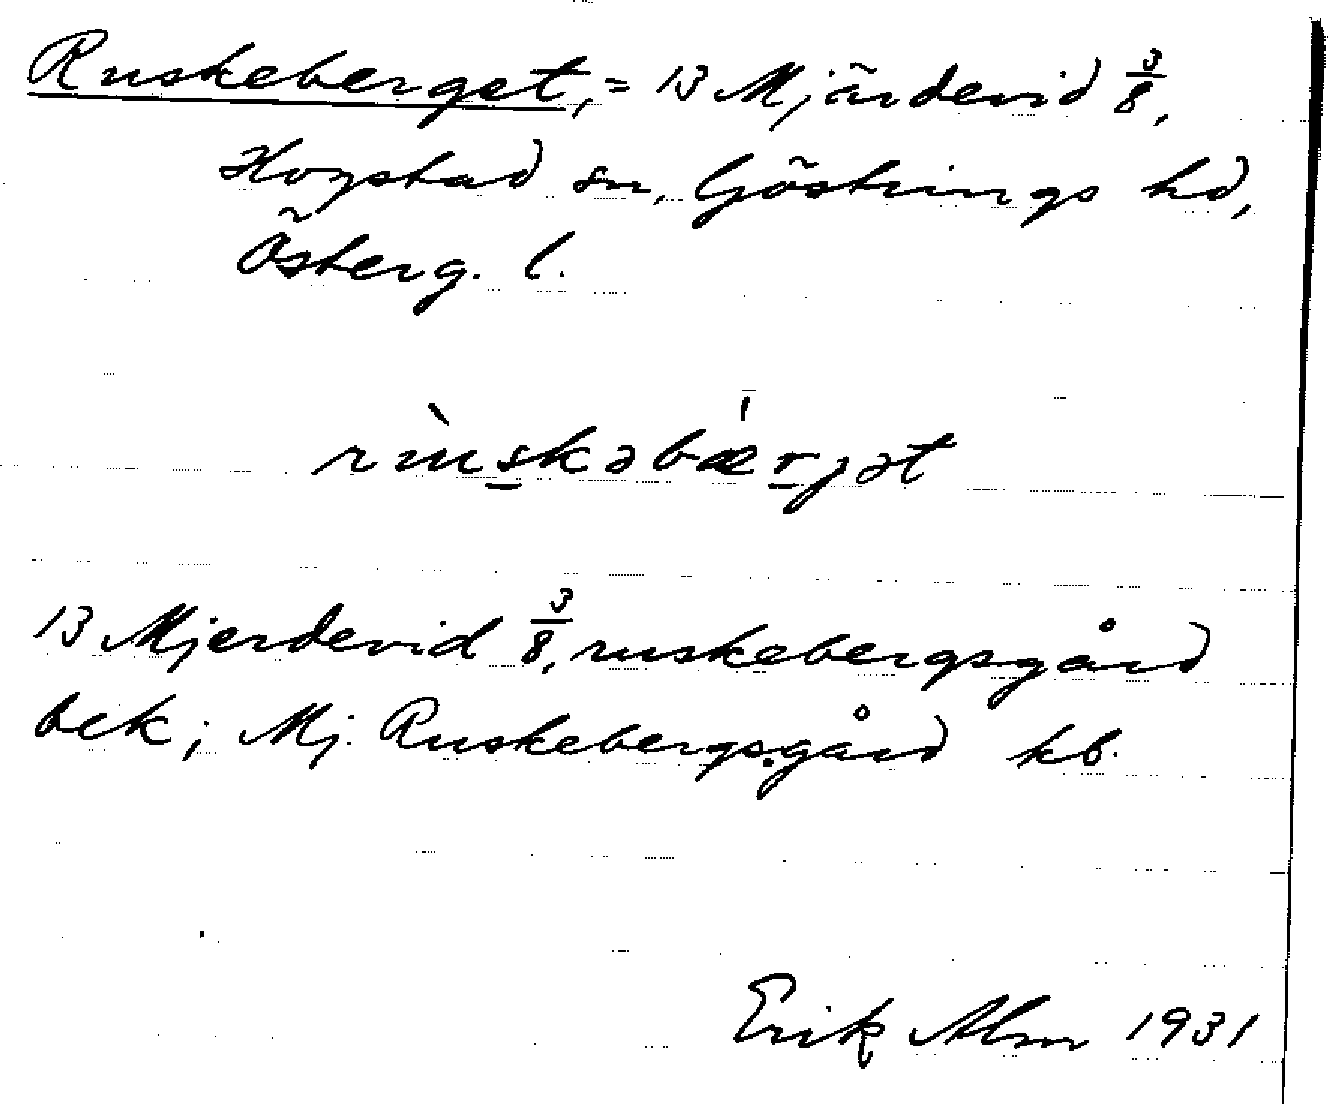 Ruskeberget, = 13 Mjärdevid 3/8,
Hogstad sn, Göstrings hd,
Österg. l.
rùskəbæ̍rjət
13 Mjerdevid 3/8, ruskebergsgård
bek; Mj. Ruskebergsgård kb.
Erik Alm 1931